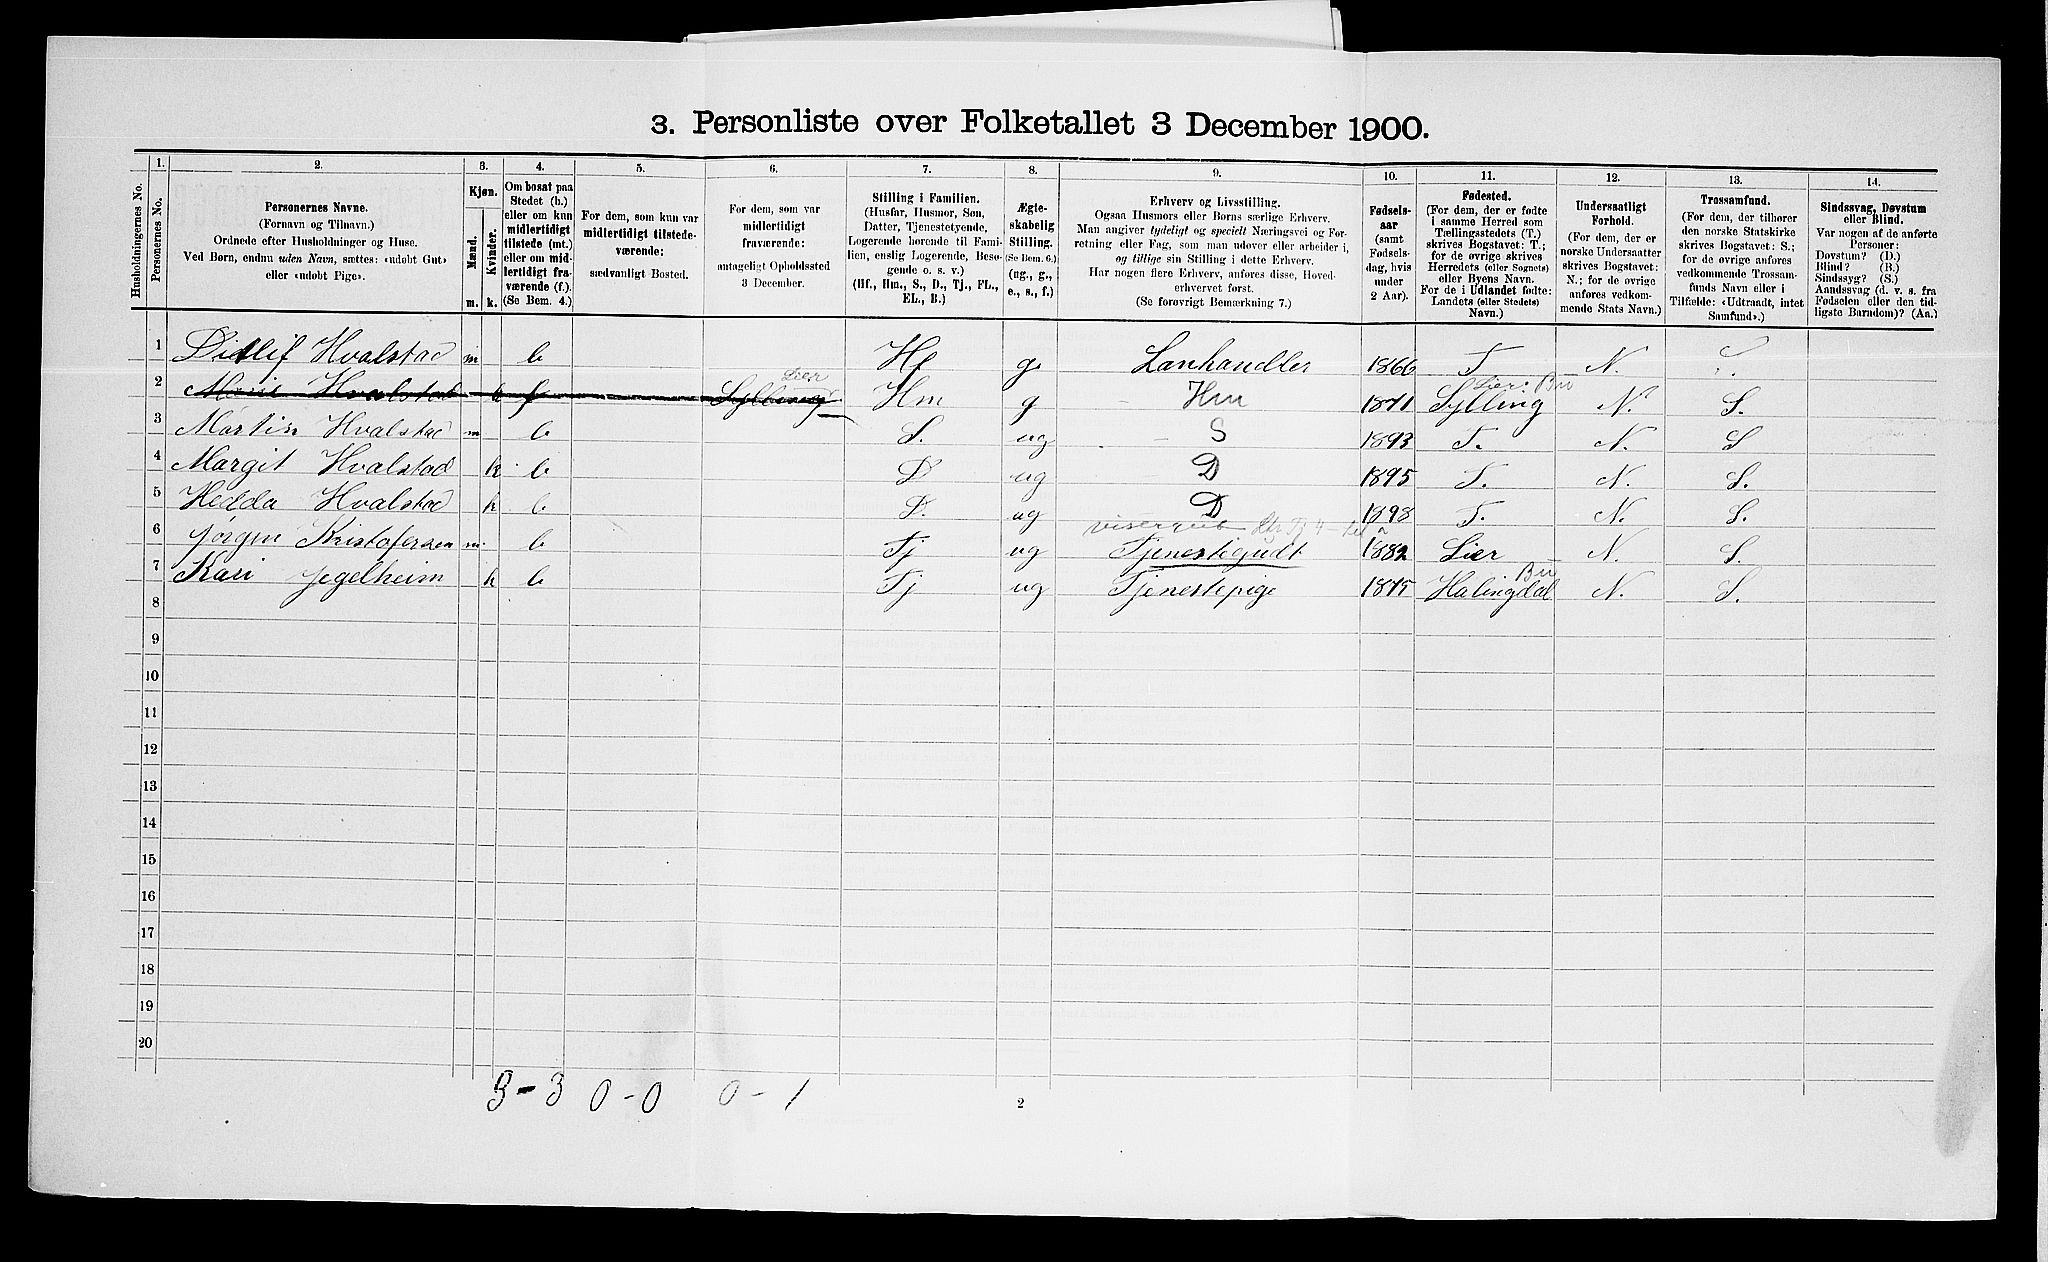 3. Personliste over Folketallet 3 December 1900.
1. 2. 3. 4. 5. 6. 7. 8. 9. 10. 11. 12. 13. 14.
Husholdningernes No.
Personernes No.
Personernes Navne.
(Fornavn og Tilnavn.)
Ordnede efter Husholdninger og Huse.
Ved Børn, endnu uden Navn, sættes: «udøbt Gut»
eller «udøbt Pige».
Kjøn.
Mænd.
Kvinder.
m. k.
Om bosat paa
Stedet (b.)
eller om kun
midlertidigt
tilstede (mt.)
eller om mid-
lertidigt fra-
værende (f.).
(Se Bem. 4.)
For dem, som kun var
midlertidigt tilstede-
værende:
sædvanligt Bosted.
For dem, som var
midlertidigt
fraværende:
antageligt Opholdssted
3 December.
Stilling i Familien.
(Husfar, Husmor, Søn,
Datter, Tjenestetyende,
Logerende hørende til Fami-
lien, enslig Logerende, Besø-
gende o. s. v.)
(Hf., Hm., S., D., Tj., FL.,
EL., B.)
Ægte-
skabelig
Stilling.
(Se Bem. 6.)
(ug., g.,
e., s., f.)
Erhverv og Livsstilling.
Ogsaa Husmors eller Børns særlige Erhverv.
Man angiver tydeligt og specielt Næringsvei og For-
retning eller Fag, som man udover eller arbeider i,
og tillige sin Stilling i dette Erhverv.
Har nogen flere Erhverv, anføres disse, Hoved-
erhvervet først.
(Se forøvrigt Bemærkning 7.)
Fødsels-
aar
(samt
Fødsels-
dag, hvis
under
2 Aar).
Fødested.
(For dem, der er fødte
i samme Herred som
Tællingsstedets (T.)
skrives Bogstavet: T.;
for de øvrige skrives
Herredets (eller Sognets)
eller Byens Navn.
For de i Udlandet fødte:
Landets (eller Stedets)
Navn.)
Undersaatligt
Forhold.
(For dem, der er
norske Undersaatter
skrives Bogstavet:
N.; for de øvrige
anføres vedkom-
mende Stats Navn.)
Trossamfund.
(For dem, der tilhører
den norske Statskirke
skrives Bogstavet: S.;
for de øvrige anføres
vedkommende Trossam-
funds Navn eller i
Tilfælde: «Udtraadt, intet
Samfund».)
Sindssvag, Døvstum
eller Blind.
Var nogen af de anførte
Personer:
Døvstum? (D.)
Blind? (B.)
Sindssyg? (S.)
Aandssvag (d. v. s. fra
Fødselen eller den tid-
ligste Barndom)? (Aa.)
1 Ditlif Hvalstad m b Hf g Lanhandler 1866 T N. S.
Lier Lier Bu
2 Marie Hvalstad k f Sylling Hm g - Hm 1871 Sylling N. S.
3 Martin Hvalstad m b S. ug - S 1893 T. N. S
4 Margit Hvalstad k b D ug D 1895 T. N. S.
5 Hedda Hvalstad k b D. ug D 1898 T. N. S.
visergut
6 Jørgen Kristofersen m b Tj ug Tjenestegudt 1882 Lier N. S.
Bu
7 Kari Jegelheim k b Tj ug Tjenestepige 1875 Halingdal N. S.
8
9
10
11
12
13
14
15
16
17
18
19
20
3-3 0-0 0-1
2